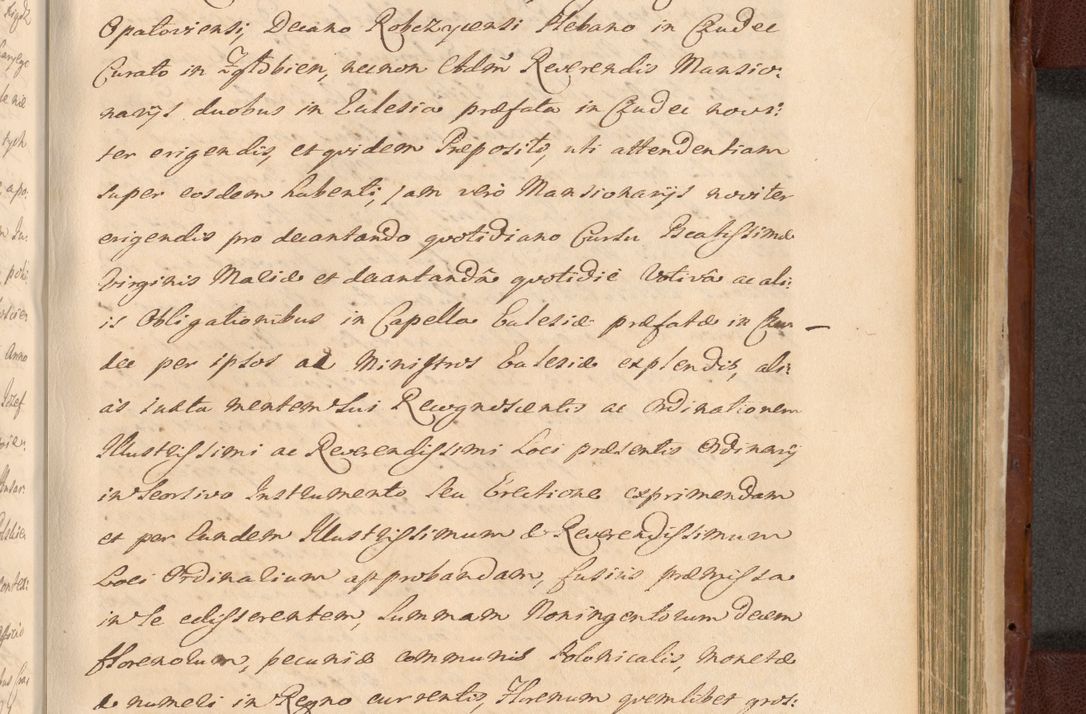 Opatoviensi, Decano Robczycensi Plebano in Czudec
Curato in Zgłobien, necnon Ebdm̃ Reverendis Mansio:
narijs duobus in Ecclesia præfata in Czudec novi:
ter erigendis, et qvidem Præposito, uti attendentiam
super eosdem habenti, jam verò Mansionarijs noviter
erigendis pro decantando qvotidiano Cursu Beatissimæ
Virginis Mariæ et decantandã qvotidiè Votivã ac ali:
is Obligationibus in Capella Ecclesiæ præfatæ in Czu
dec per ipsos ad Ministros Ecclesiæ explendis, ali:
às iuxta mentem sui Recognoscentis ac Ordinationem
Illustrissimi ac Reverendissimi Loci præsentis Ordinarij
in seorsivo Instrumento seu Erectione exprimendam
et per Eundem Illustrissimum & Reverendissimum
Loci Ordinarium approbandam, fusius præmissa
in se edisserentem, Summam Noningentorum decem
florenorum, pecuniæ communis Polonicalis, monetæ
& numeri in Regno currentis, Florenum qvemlibet gros: